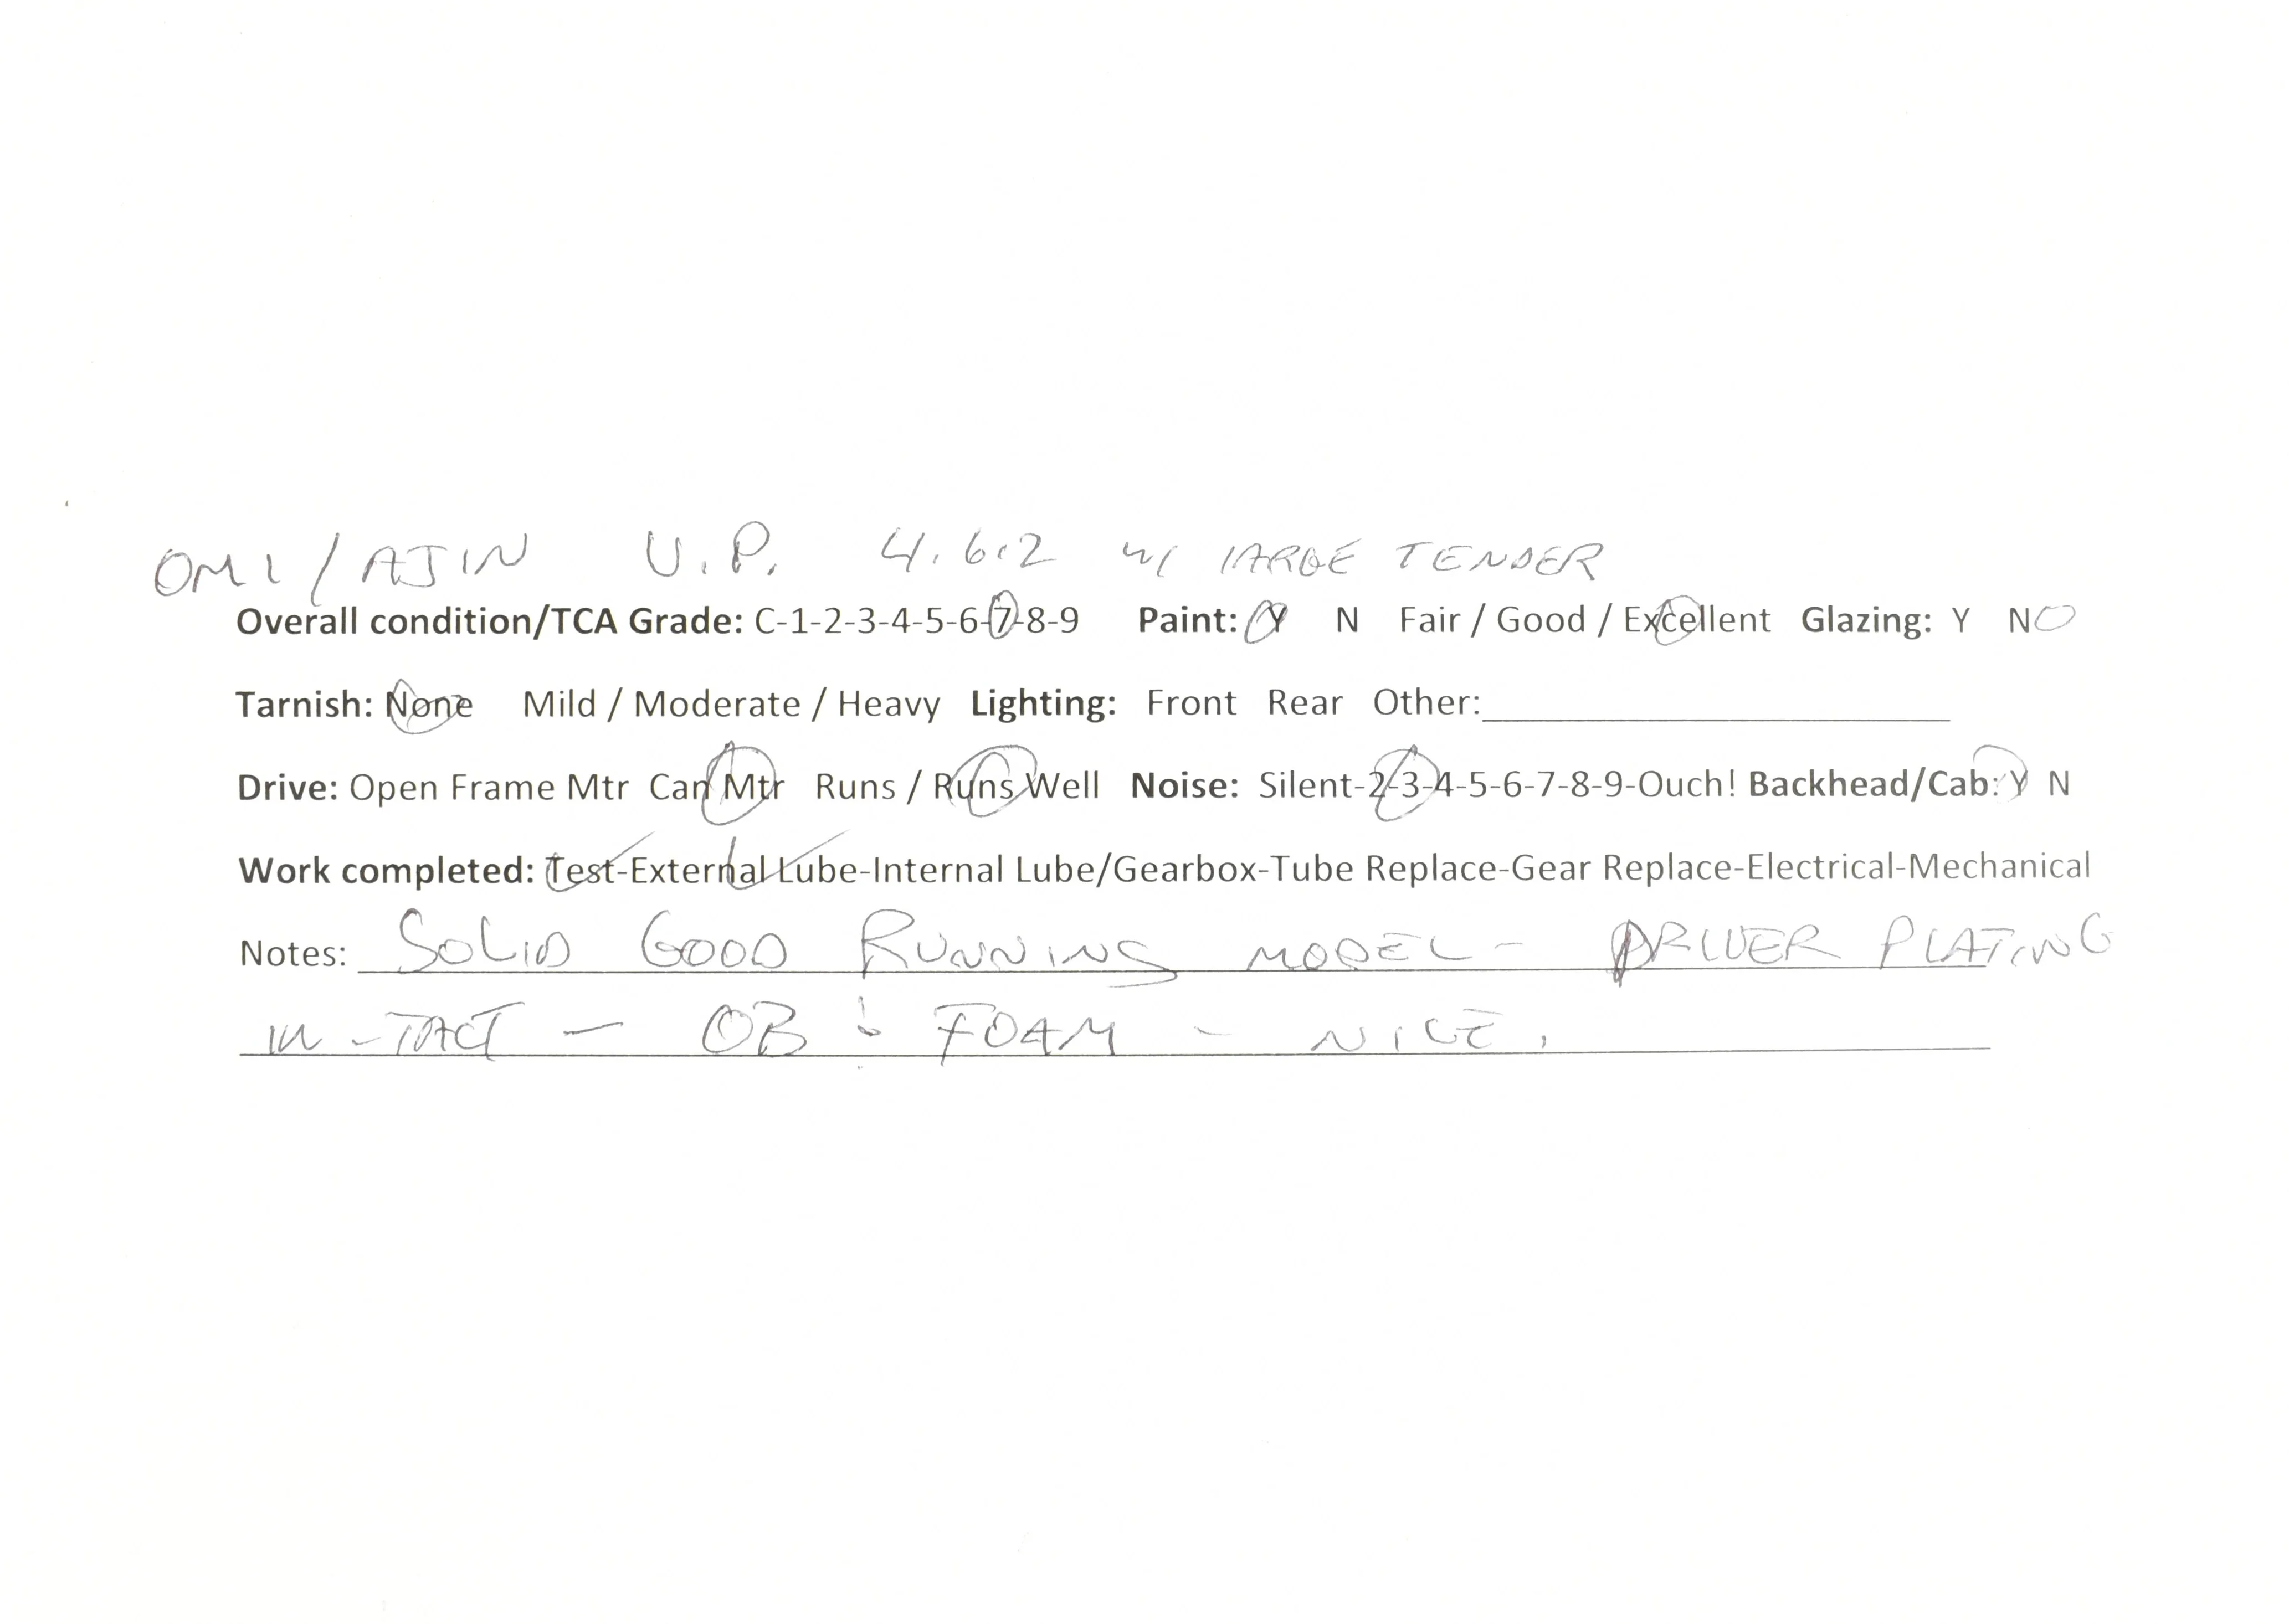 OMI/AJIN U.P. 4.6.2 w/ LARGE TENDER
Overall condition/TCA Grade: C-1-2-3-4-5-6-7-8-9 Paint: Y N Fair / Good / Excellent Glazing: Y N
Tarnish: None Mild / Moderate / Heavy Lighting: Front Rear Other:
Drive: Open Frame Mtr Can Mtr Runs / Runs Well Noise: Silent-2-3-4-5-6-7-8-9-Ouch! Backhead/Cab: Y N
Work completed: Test-External Lube-Internal Lube/Gearbox-Tube Replace-Gear Replace-Electrical-Mechanical
Notes: SOLID GOOD RUNNING MODEL - DRIVER PLATING
IN-TACT - OB & FOAM - NICE.